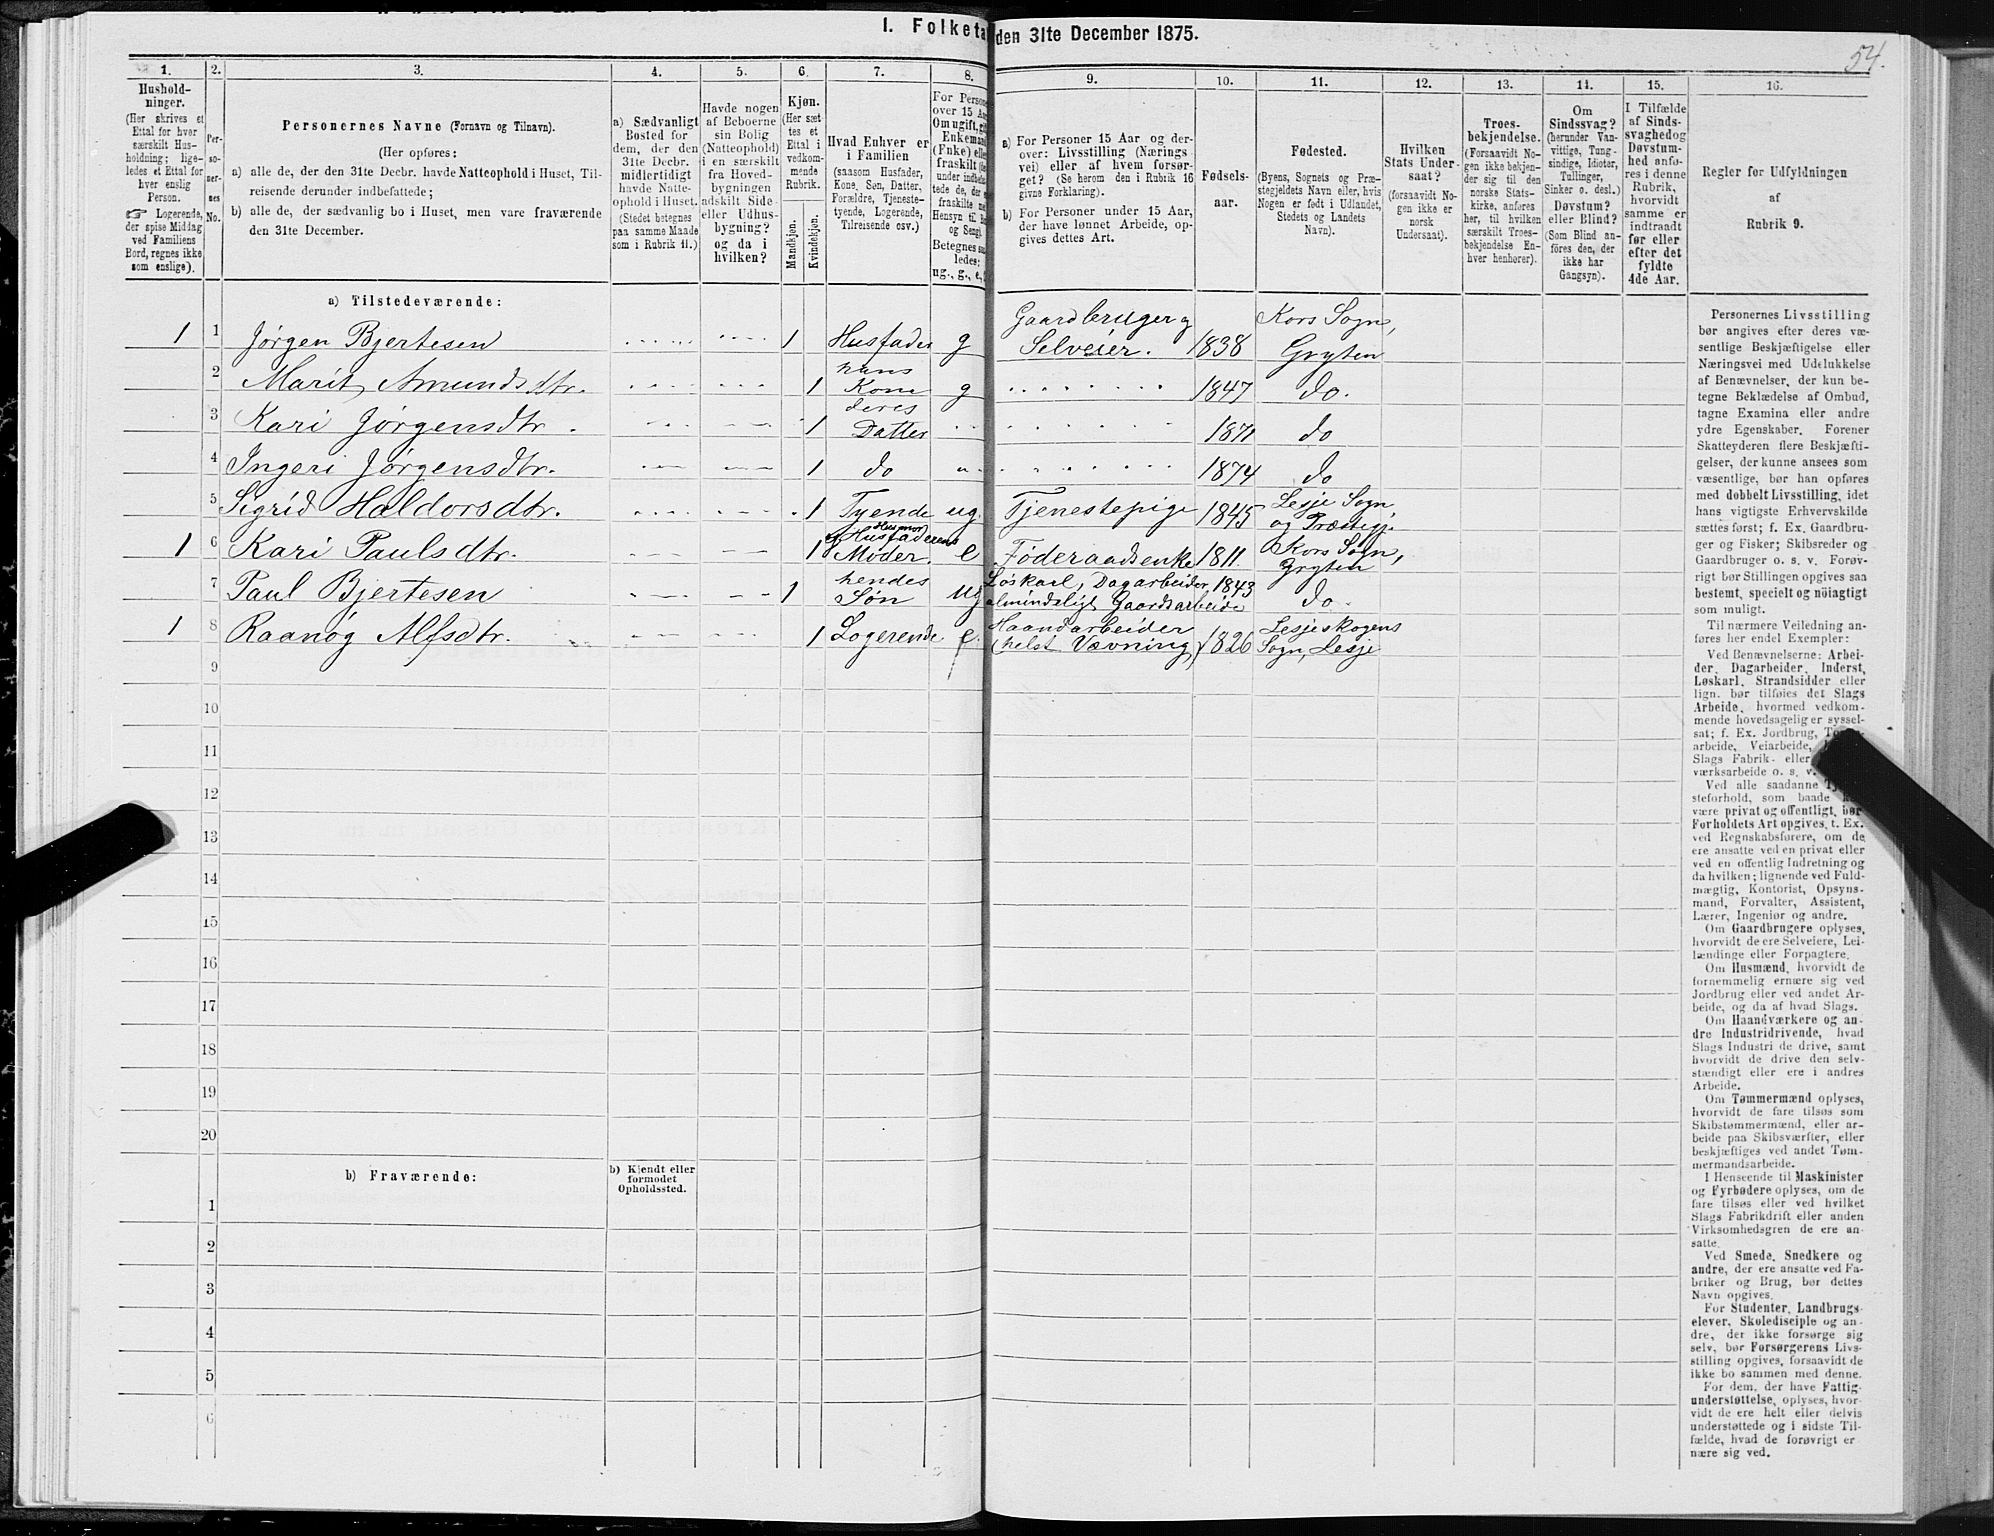 I. Folketal den 31te December 1875.
54.
1. 2. 3. 4. 5. 6. 7. 8. 9. 10. 11. 12. 13. 14. 15. 16.
Hushold-
ninger.
(Her skrives et
Ettal for hver
særskilt Hus-
holdning; lige-
ledes et Ettal for
hver enslig
Person.
☞ Logerende,
der spise Middag
ved Familiens
Bord, regnes ikke
som enslige).
Per-
so-
ner-
nes
No.
Personernes Navne (Fornavn og Tilnavn).
(Her opføres:
a) alle de, der den 31te Decbr. havde Natteophold i Huset, Til-
reisende derunder indbefattede;
b) alle de, der sædvanlig bo i Huset, men vare fraværende
den 31te December.
a) Sædvanligt
Bosted for
dem, der den
31te Decbr.
midlertidigt
havde Natte-
ophold i Huset.
(Stedet betegnes
paa samme Maade
som i Rubrik 11.)
Havde nogen
af Beboerne
sin Bolig
(Natteophold)
i en særskilt
fra Hoved-
bygningen
adskilt Side-
eller Udhus-
bygning?
og da i
hvilken?
Kjøn.
(Her sæt-
tes et
Ettal i
vedkom-
mende
Rubrik.
Mandkjøn.
Kvindekjøn.
Hvad Enhver er
i Familien
(saasom Husfader,
Kone, Søn, Datter,
Forældre, Tjeneste-
tyende, Logerende,
Tilreisende osv.)
For Person
over 15 Aa
Om ugift, gift
Enkemand
(Enke) eller
fraskilt
Betegnes saa-
ledes:
ug., g., e.,
a) For Personer 15 Aar og der-
over: Livsstilling (Nærings-
vei) eller af hvem forsør-
get? (Se herom den i Rubrik 16
givne Forklaring).
b) For Personer under 15 Aar,
der have lønnet Arbeide, op-
gives dettes Art.
Fødsels-
aar.
Fødested.
(Byens, Sognets og Præ-
stegjeldets Navn eller, hvis
Nogen er født i Udlandet,
Stedets og Landets
Navn).
Hvilken
Stats Under-
saat?
(forsaavidt No-
gen ikke er
norsk
Undersaat).
Troes-
bekjendelse.
(Forsaavidt No-
gen ikke bekjen-
der sig til den
norske Stats-
kirke, anføres
her, til hvilken
særskilt Troes-
bekjendelse En-
hver henhører).
Om
Sindssvag?
(herunder Van-
vittige, Tung-
sindige, Idioter,
Tullinger,
Sinker o. desl.)
Døvstum?
eller Blind?
(Som Blind an-
føres den, der
ikke har
Gangsyn).
I Tilfælde
af Sinds-
svaghed og
Døvstum-
hed anfø-
res i denne
Rubrik,
hvorvidt
samme er
indtraadt
før eller
efter det
fyldte
4de Aar.
Regler for Udfyldningen
af
Rubrik 9.
a) Tilstedeværende:
1 1 Jørgen Bjertesen 1 Husfader g Gaardbruger og Selveier. 1838 Kors Sogn, Gryten
2 Marit Amundsdtr. 1 hans Kone g 1847 do.
3 Kari Jørgensdtr. 1 deres Datter 1871 do
4 Ingeri Jørgensdtr. 1 do 1874 do
5 Sigrid Haldorsdtr. 1 Tyende ug. Tjenestepige 1845 Lesje Sogn og Præstegj.
1 6 Kari Paulsdtr. 1 Husfaderens Moder. e. Føderaadsenke 1811 Kors Sogn, Gryten
7 Paul Bjertesen 1 hendes Søn ug Løskarl, Dagarbeider, almindeligt Gaardsarbeide 1843 do.
1 8 Raanog Alfsdtr. 1 Logerende e. Haandarbeider (helst Vævning) 1826 Lesjeskogens Sogn, Lesje
9
10
11
12
13
14
15
16
17
18
19
20
b) Fraværende:
b) Kjendt eller
formodet
Opholdssted.
1
2
3
4
5
6
Personernes Livsstilling
bør angives efter deres væ-
sentlige Beskjæftigelse eller
Næringsvei med Udelukkelse
af Benævnelser, der kun be-
tegne Beklædelse af Ombud,
tagne Examina eller andre
ydre Egenskaber. Forener
Skatteyderen flere Beskjæfti-
gelser, der kunne ansees som
væsentlige, bør han opføres
med dobbelt Livsstilling, idet
hans vigtigste Erhvervskilde
sættes først; f. Ex. Gaardbru-
ger og Fisker; Skibsreder og
Gaardbruger o. s. v. Forøv-
rigt bør Stillingen opgives saa
bestemt, specielt og nøiagtigt
som muligt.
Til nærmere Veiledning an-
føres her endel Exempler:
Ved Benævnelserne: Arbei-
der, Dagarbeider, Inderst,
Løskarl, Strandsidder eller
lign. bør tilføies det Slags
Arbeide, hvormed vedkom-
mende hovedsagelig er syssel-
sat; f. Ex. Jordbrug,
arbeide, Veiarbeide,
Slags Fabrik- eller
værksarbeide o. s. v.
Ved alle saadanne
steforhold, som baade
være privat og offentligt, bør
Forholdets Art opgives, t. Ex.
ved Regnskabsførere, om de
ere ansatte ved en privat eller
ved en offentlig Indretning og
da hvilken; lignende ved Fuld-
mægtig, Kontorist, Opsyns-
mand, Forvalter, Assistent,
Lærer, Ingeniør og andre.
Om Gaardbrugere oplyses,
hvorvidt de ere Selveiere, Lei-
lændinge eller Forpagtere.
Om Husmænd, hvorvidt de
fornemmelig ernære sig ved
Jordbrug eller ved andet Ar-
beide, og da af hvad Slags.
Om Haandværkere og an-
dre Industridrivende, hvad
Slags Industri de drive, samt
hvorvidt de drive den selv-
stændigt eller ere i andres
Arbeide.
Om Tømmermænd oplyses,
hvorvidt de fare tilsøs som
Skibstømmermænd, eller ar-
beide paa Skibsværfter, eller
beskjæftiges ved andet Tøm-
mermandsarbeide.
I Henseende til Maskinister
og Fyrbødere oplyses, om de
fare tilsøs eller ved hvilket
Slags Fabrikdrift eller anden
Virksomhedsgren de ere an-
satte.
Ved Smede, Snedkere og
andre, der ere ansatte ved Fa-
briker og Brug, bør dettes
Navn opgives.
For Studenter, Landbrugs-
elever, Skoledisciple og an-
dre, der ikke forsørge sig
selv, bør Forsørgerens Livs-
stilling opgives, forsaavidt de
ikke bo sammen med denne.
For dem, der have Fattig-
understøttelse, oplyses, hvor-
vidt de ere helt eller delvis
understøttede og i sidste Til-
fælde, hvad de forøvrigt er-
nære sig ved.